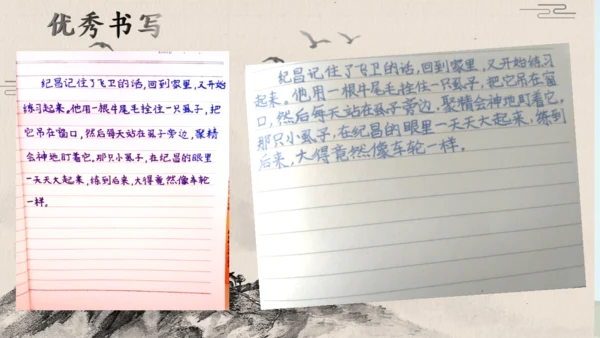 优秀书写
纪昌记住了飞卫的话,回到家里,又开始
练习起来。他用一根牛尾毛拴住一只虱子,把
它吊在窗口,然后每天站在虱子旁边,聚精
会神地盯着它,那只小虱子,在纪昌的眼里
一天天大起来,练到后来,大得竟然像车轮
一样。
纪昌记住了飞卫的话,回到家里,又开始练习
起来。他用一根牛尾毛拴住一只虱子,把它吊在窗
口,然后每天站在虱子旁边,聚精会神地盯着它,
那只小虱子,在纪昌的眼里一天天大起来,练到
后来,大得竟然像车轮一样。